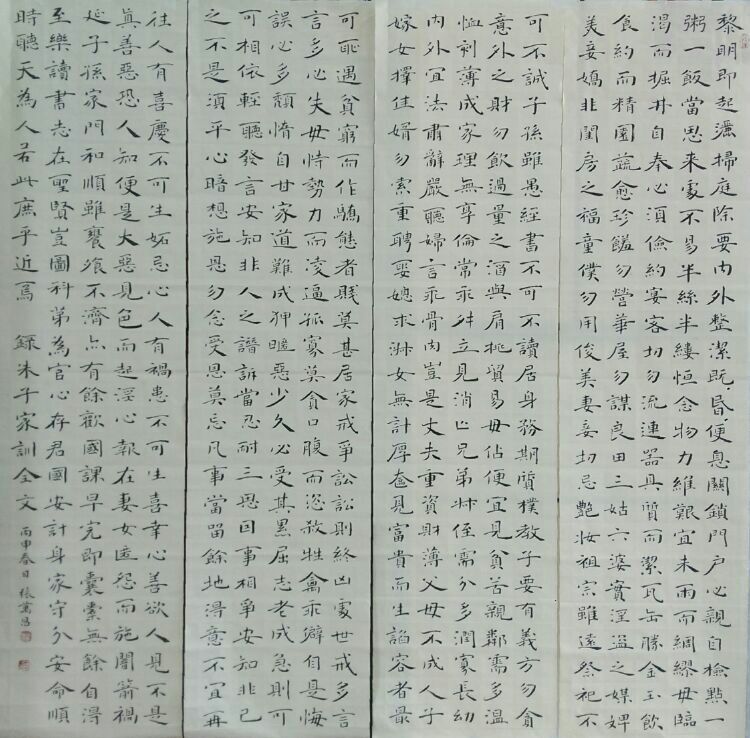 黎明即起灑掃庭除要内外整潔既昏便息關鎖門户必親自檢點一
粥一飯當思来處不易半絲半縷恒念物力維艱宜未雨而綢繆毋臨
渴而掘井自奉必須儉約宴客切勿流連器具質而潔瓦缶勝金玉飲
食約而精園蔬愈珍饈勿營華屋勿謀良田三姑六婆實淫盜之媒婢
美妾嬌非閨房之福童僕勿用俊美妻妾切忌艷妝祖宗雖遠祭祀不
可不誠子孫雖愚經書不可不讀居身務期質樸教子要有義方勿貪
意外之財勿飲過量之酒與肩挑貿易毋佔便宜見貧苦親鄰需多溫
恤刻薄成家理無享倫常乖舛立見消亡兄弟叔侄需分多潤寡長幼
内外宜法肅辭嚴聽婦言乖骨肉豈是丈夫重資財薄父母不成人子
嫁女擇佳婿勿索重聘娶媳求淑女無計厚奩見富貴而生諂容者最
可恥遇貧窮而作驕態者賤莫甚居家戒爭訟訟則終凶處世戒多言
言多必失毋恃勢力而凌逼孤寡莫貪口腹而恣殺牲禽乖僻自是悔
誤必多頹惰自甘家道難成狎暱惡少久必受其累屈志老成急則可
可相依輕聽發言安知非人之譖訴當忍耐三思因事相爭安知非己
之不是須平心暗想施恩勿念受恩莫忘凡事當留餘地得意不宜再
往人有喜慶不可生妬忌心人有禍患不可生喜幸心善欲人見不是
真善惡恐人知便是大惡見色而起淫心報在妻女匿怨而施闇箭禍
延子孫家門和順雖饔飧不濟亦有餘歡國課早完即囊橐無餘自得
至樂讀書志在聖賢豈圖科第為官心存君國安計身家守分安命順
時聽天為人若此庶乎近焉 錄朱子家訓全文 丙申春日 張